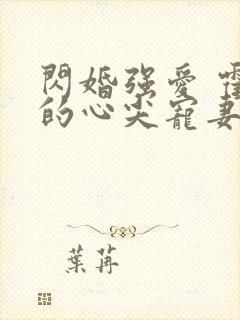 閃婚強愛 霍
的心尖寵妻
葉苒